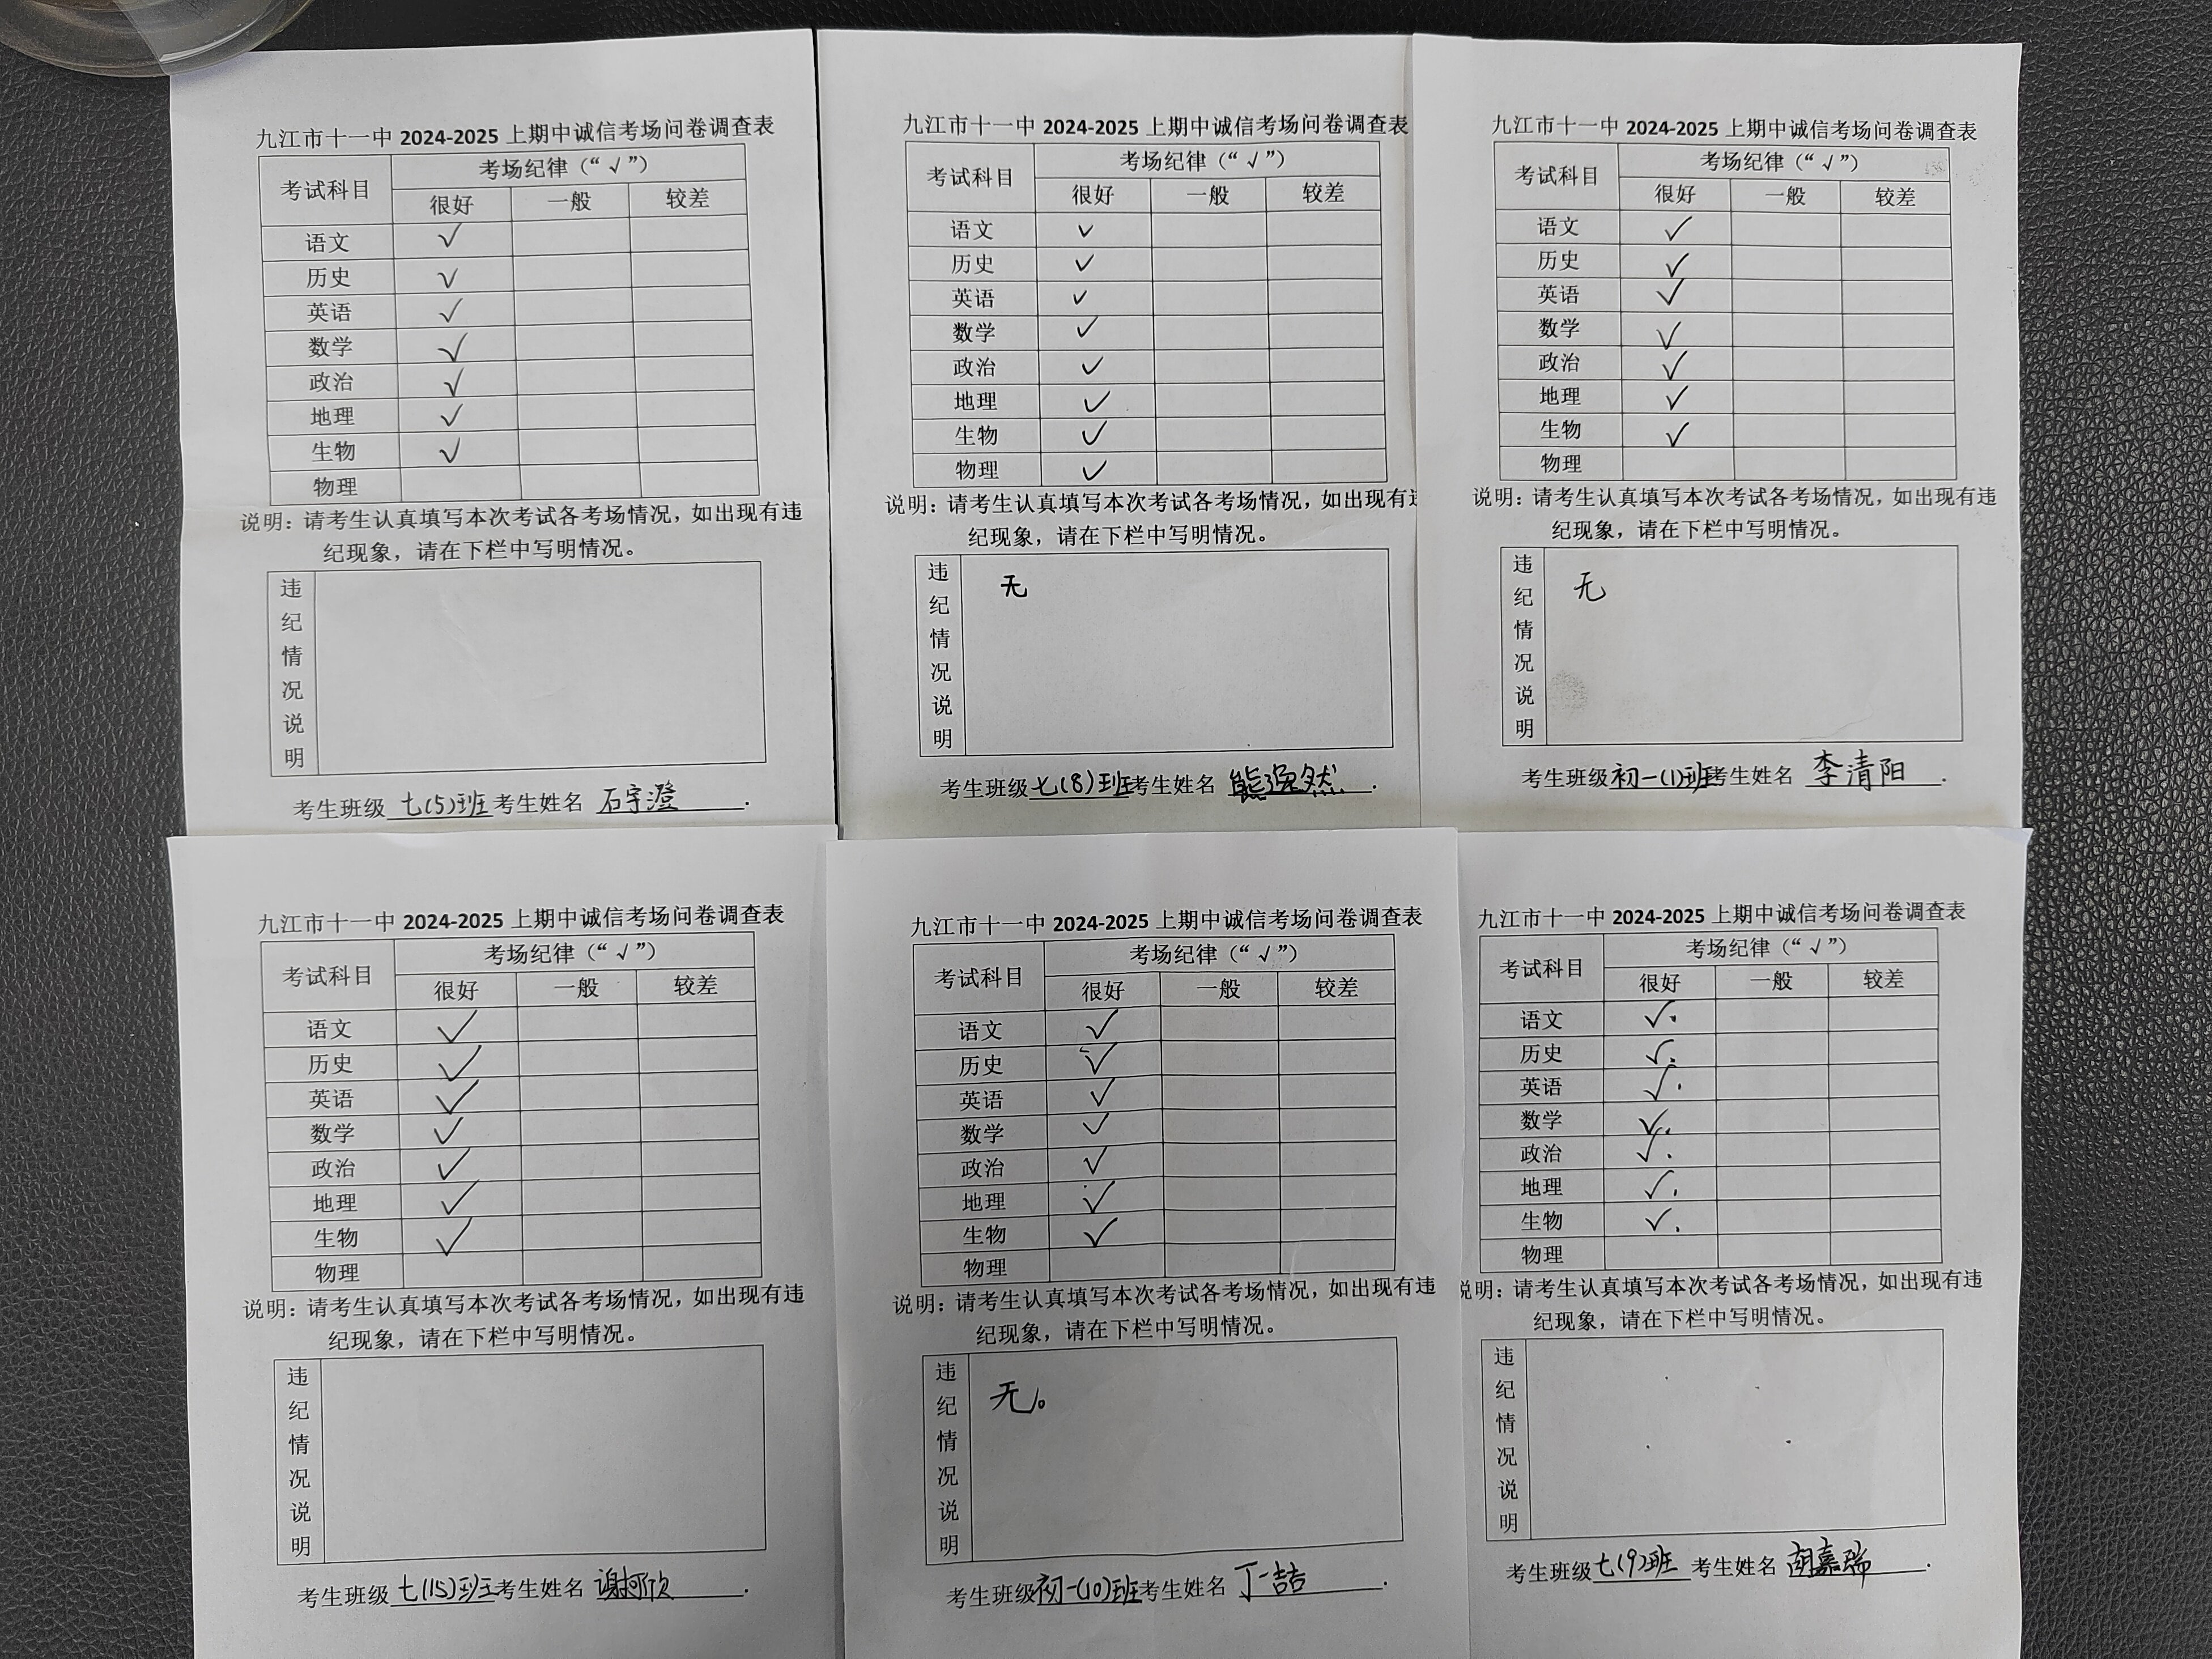 九江市十一中 2024-2025 上期中诚信考场问卷调查表
考试科目 考场纪律（“√”）
很好 一般 较差
语文 √
历史 √
英语 √
数学 √
政治 √
地理 √
生物 √
物理
说明：请考生认真填写本次考试各考场情况，如出现有违
纪现象，请在下栏中写明情况。
违纪情况说明
考生班级 七(5)班 考生姓名 石宇澄.
九江市十一中 2024-2025 上期中诚信考场问卷调查表
考试科目 考场纪律（“√”）
很好 一般 较差
语文 √
历史 √
英语 √
数学 √
政治 √
地理 √
生物 √
物理 √
说明：请考生认真填写本次考试各考场情况，如出现有
纪现象，请在下栏中写明情况。
违纪情况说明 无
考生班级 七(8)班 考生姓名 熊 然.
九江市十一中 2024-2025 上期中诚信考场问卷调查表
考试科目 考场纪律（“√”）
很好 一般 较差
语文 √
历史 √
英语 √
数学 √
政治 √
地理 √
生物 √
物理
说明：请考生认真填写本次考试各考场情况，如出现有违
纪现象，请在下栏中写明情况。
违纪情况说明 无
考生班级 初一(1)班 考生姓名 李清阳.
九江市十一中 2024-2025 上期中诚信考场问卷调查表
考试科目 考场纪律（“√”）
很好 一般 较差
语文 √
历史 √
英语 √
数学 √
政治 √
地理 √
生物 √
物理
说明：请考生认真填写本次考试各考场情况，如出现有违
纪现象，请在下栏中写明情况。
违纪情况说明
考生班级 七(15)班 考生姓名 谢柯欣.
九江市十一中 2024-2025 上期中诚信考场问卷调查表
考试科目 考场纪律（“√”）
很好 一般 较差
语文 √
历史 √
英语 √
数学 √
政治 √
地理 √
生物 √
物理
说明：请考生认真填写本次考试各考场情况，如出现有违
纪现象，请在下栏中写明情况。
违纪情况说明 无。
考生班级 初一(10)班 考生姓名 丁一喆.
九江市十一中 2024-2025 上期中诚信考场问卷调查表
考试科目 考场纪律（“√”）
很好 一般 较差
语文 √
历史 √
英语 √
数学 √
政治 √
地理 √
生物 √
物理
说明：请考生认真填写本次考试各考场情况，如出现有违
纪现象，请在下栏中写明情况。
违纪情况说明
考生班级 七(9)班 考生姓名 胡嘉瑞.